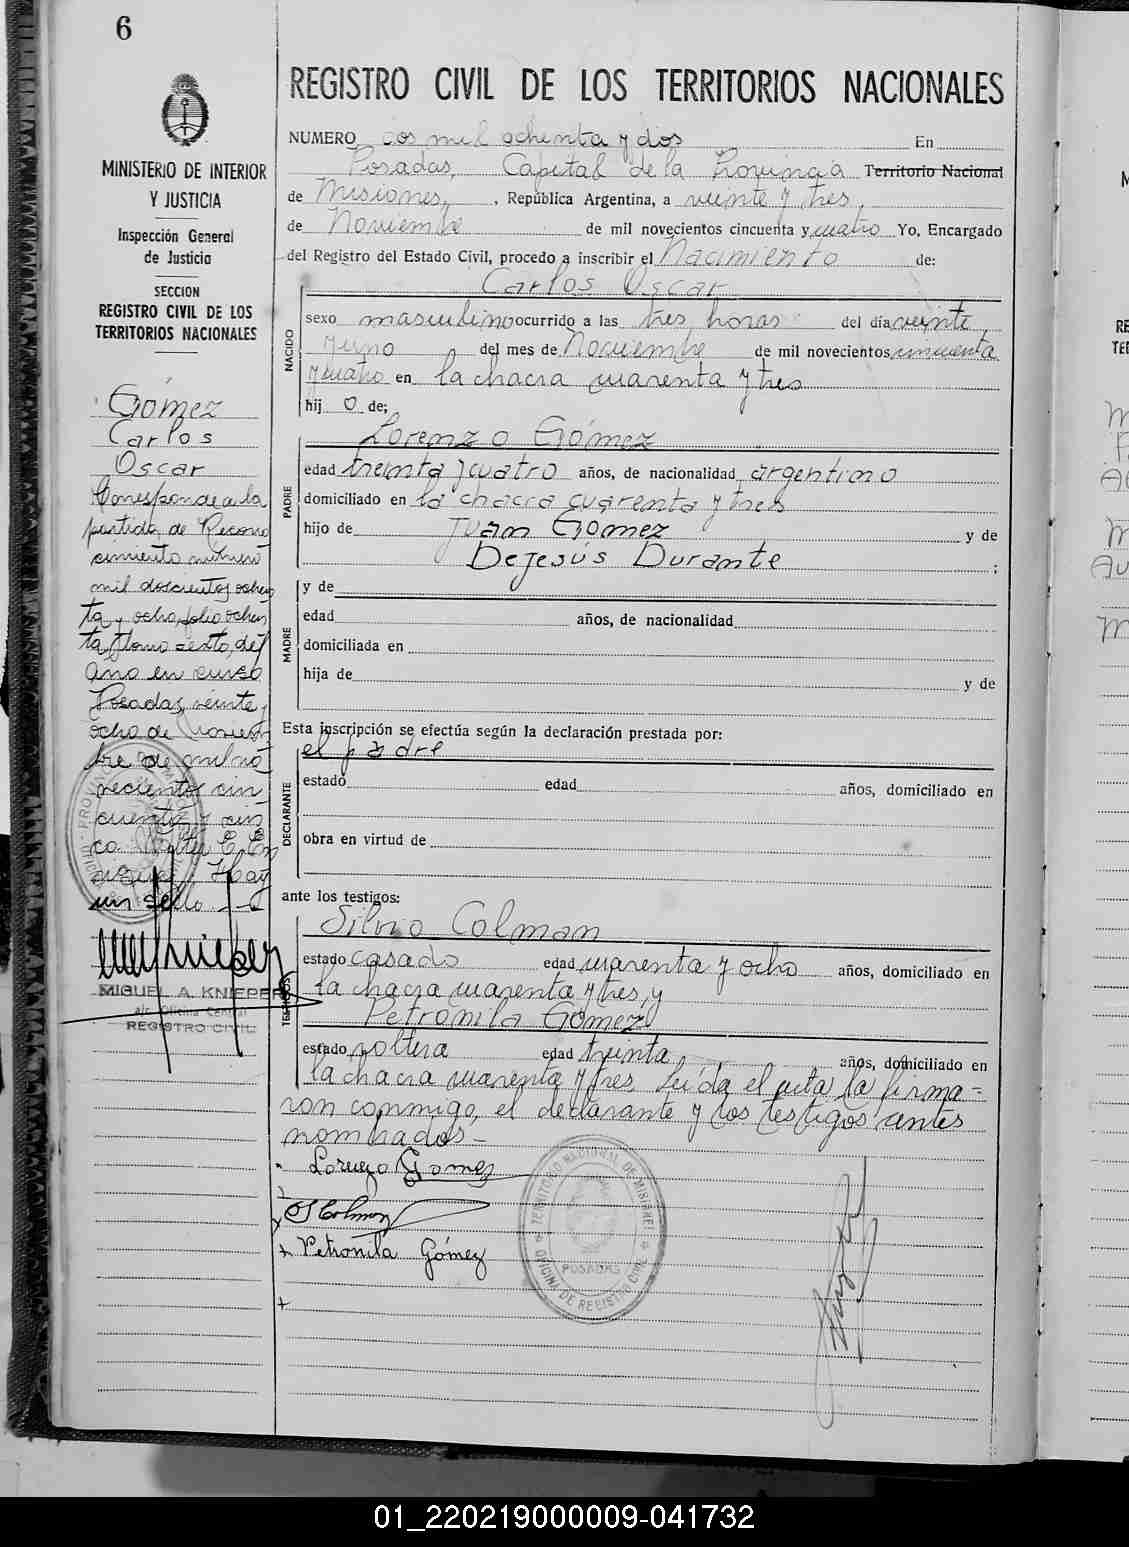 6
MINISTERIO DE INTERIOR
Y JUSTICIA
Inspección General
de Justicia
SECCION
REGISTRO CIVIL DE LOS
TERRITORIOS NACIONALES
Gómez
Carlos
Oscar
Corresponde a la
partida de Recono
cimiento número
mil doscientos ochen
ta y ocho, folio ochen
ta, tomo sexto, del
año en curso
Posadas, veinte y
ocho de Noviem
bre de mil no
vecientos cin
cuenta y cin
co
Hay
un sello
MIGUEL A. KNIEPER
a/c. Oficina Central
REGISTRO CIVIL
REGISTRO CIVIL DE LOS TERRITORIOS NACIONALES
NUMERO dos mil ochenta y dos En
Posadas, Capital de la Provincia Territorio Nacional
de Misiones, , República Argentina, a veinte y tres,
de Noviembre de mil novecientos cincuenta y cuatro Yo, Encargado
del Registro del Estado Civil, procedo a inscribir el Nacimiento de:
Carlos Oscar
NACIDO
sexo masculino ocurrido a las tres horas del día veinte
y uno del mes de Noviembre de mil novecientos cincuenta
y cuatro en la chacra cuarenta y tres
hij o de;
PADRE
Lorenzo Gómez
edad treinta y cuatro años, de nacionalidad argentino
domiciliado en la chacra cuarenta y tres
hijo de Juan Gomez y de
Dejesús Durante ;
MADRE
y de
edad años, de nacionalidad
domiciliada en
hija de y de
Esta inscripción se efectúa según la declaración prestada por:
el padre
DECLARANTE
estado edad años, domiciliado en
obra en virtud de
ante los testigos:
TESTIGOS
Silvio Colman
estado casado edad cuarenta y ocho años, domiciliado en
la chacra cuarenta y tres, y
Petronila Gomez
estado soltera edad treinta años, domiciliado en
la chacra cuarenta y tres. Leída el acta la firma=
ron conmigo, el declarante y los testigos antes
nombrados-
Lorenzo Gomez
S Colman
Petronila Gómez
TERRITORIO NACIONAL DE MISIONES
POSADAS
OFICINA DE REGISTRO CIVIL
01_220219000009-041732